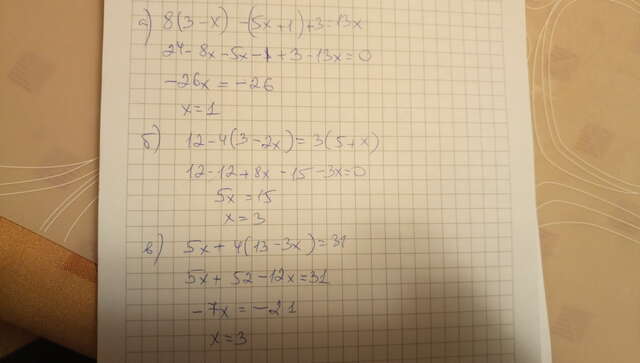 а) 8(3-x) -(5x+1)+3=13x
24-8x-5x-1+3-13x=0
-26x = -26
x=1
б) 12-4(3-2x)=3(5+x)
12-12+8x-15-3x=0
5x=15
x=3
в) 5x+4(13-3x)=31
5x+52-12x=31
-7x=-21
x=3